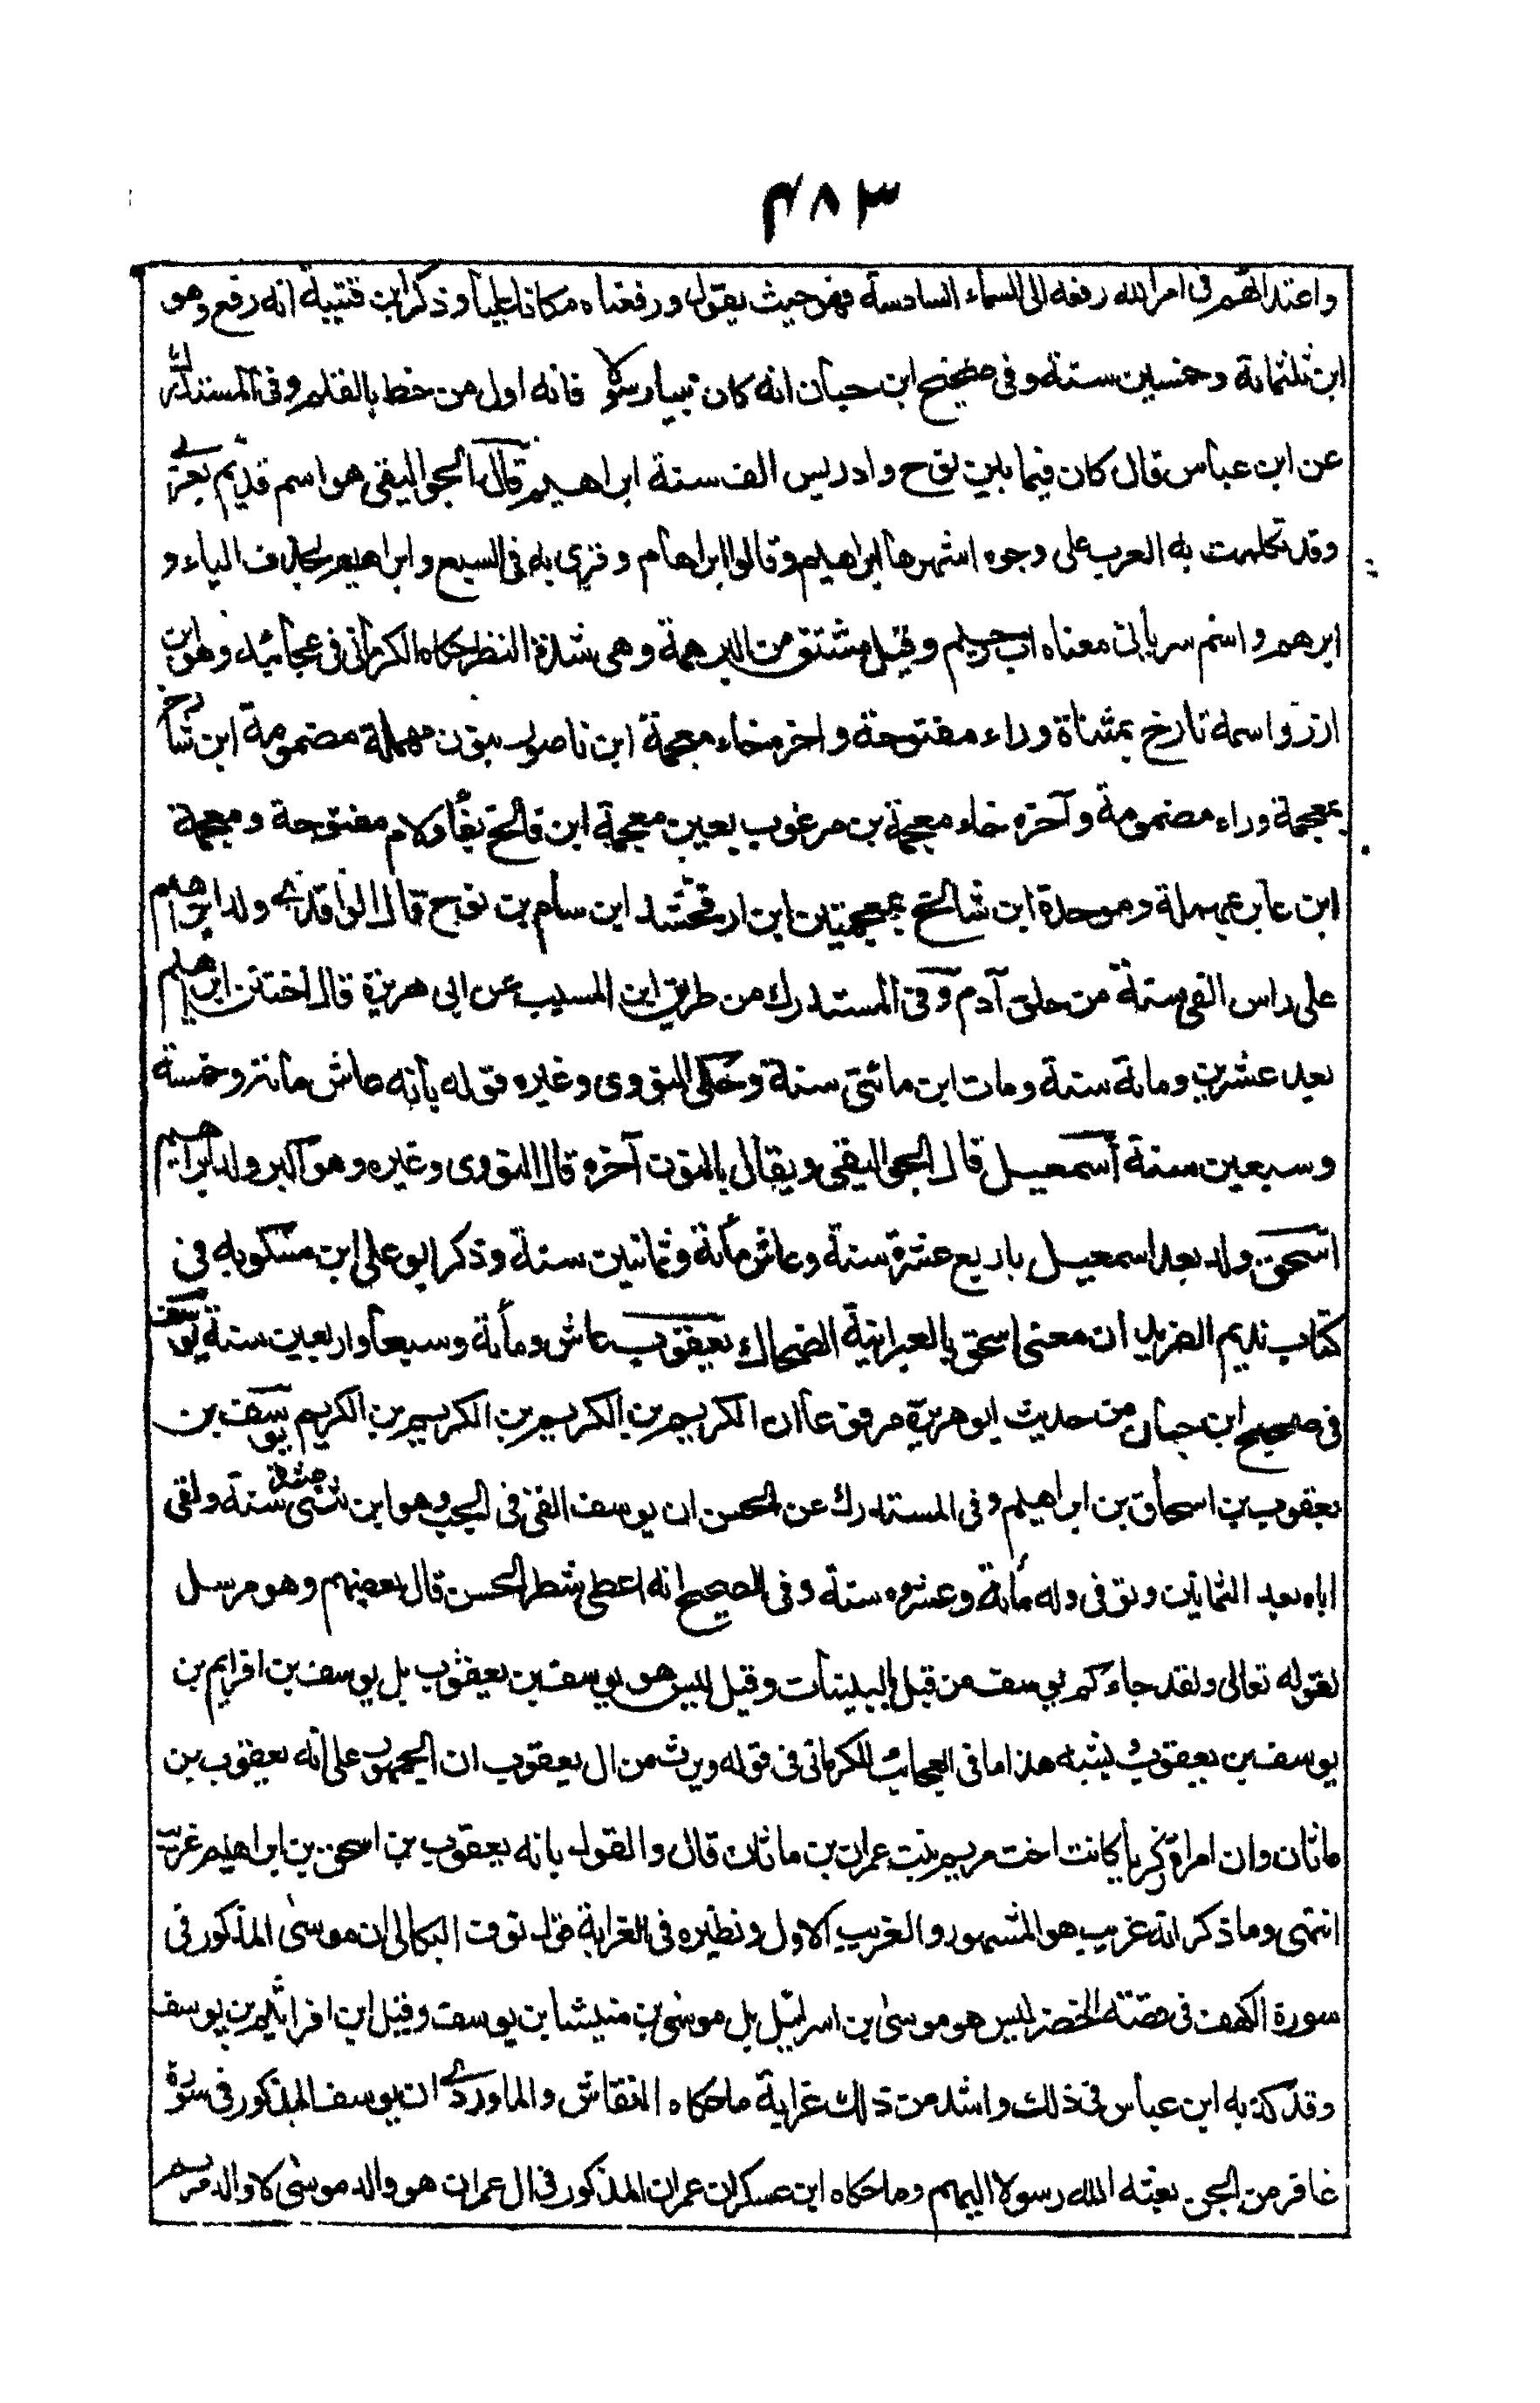 ٤٨٣
واعتدالهم فى امر الله رفعه الى السماء السادسة فهو حيث يقول ورفعناه مكانا عليا وذكر ابن قتيبة انه رفع وهو
ابن ثلثمائة وخمسين سنة وفى صحيح ابن حبان انه كان نبيا رسولا فانه اول من خط بالقلم وفى المستدرك
عن ابن عباس قال كان فيما بين نوح وادريس الف سنة ابراهيم قال الجواليقى هو اسم قديم ليس بعربى
وقد تكلمت به العرب على وجوه اشهرها ابراهيم وقالوا ابراهام وقرئ به فى السبع وابراهم بحذف الياء و
ابرهم واسم سريانى معناه اب رحيم وقيل مشتق من البرهمة وهى شدة النظر حكاه الكرمانى فى عجائبه وهو ابن
ازر واسمه تارخ بمثناة وراء مفتوحة واخره خاء معجمة ابن ناصور بنون مهملة مضمومة ابن شارخ
بمعجمة وراء مضمومة وآخره خاء معجمة بن مرغوب بعين معجمة ابن فالخ بفاء ولام مفتوحة ومعجمة
ابن عابر بمهملة وموحدة ابن شالخ بمعجمتين ابن ارفخشد ابن سام بن نوح قال الواقدى ولد ابراهيم
على راس الفى سنة من خلق آدم وفى المستدرك من طريق ابن المسيب عن ابى هريرة قال اختتن ابراهيم
بعد عشرين ومائة سنة ومات ابن مائتى سنة وحكى النووى وغيره قوله بأنه عاش مائة وخمسة
وسبعين سنة أسمعيل قال الجواليقى ويقال بالنون آخره قال النووى وغيره وهو اكبر ولد ابراهيم
اسحق ولد بعد اسمعيل باربع عشرة سنة وعاش مأنة وثمانين سنة وذكر ابو على ابن مسكويه فى
كتاب نديم الفريد ان معنى اسحق بالعبرانية الضحاك يعقوب عاش ومأنة وسبعا واربعين سنة يوسف
فى صحيح ابن حبان من حديث ابو هريرة مرفوعا ان الكريم بن الكريم بن الكريم بن الكريم يوسف بن
يعقوب بن اسحاق بن ابراهيم وفى المستدرك عن الحسن ان يوسف القى فى الجب وهو ابن ثنتى عشرة سنة ولقى
اباه بعد الثمانين وتوفى وله مأنة وعشرون سنة وفى الصحيح انه اعطى شطر الحسن قال بعضهم وهو مرسل
لقوله تعالى ولقد جاءكم يوسف من قبل بالبينات وقيل ليس هو يوسف بن يعقوب بل يوسف بن افرايم بن
يوسف بن يعقوب ويشبه هذا ما فى العجائب للكرمانى فى قوله ويرث من ال يعقوب ان الجمهور على انه يعقوب بن
ماثان وان امراة زكريا كانت اخت مريم بنت عمران بن ماثان قال والقول بانه يعقوب بن اسحق بن ابراهيم غريب
انتهى وما ذكر انه غريب هو المشهور والغريب الاول ونظيره فى الغرابة قول نوف البكالى ان موسى المذكور فى
سورة الكهف فى قصة الخضر ليس هو موسى بن اسرائيل بل موسى بن منيشا بن يوسف وقيل ابن افراثيم بن يوسف
وقد كذبه ابن عباس فى ذلك واشد من ذلك غرابة ما حكاه النقاش والماوردى ان يوسف المذكور فى سورة
غافر من الجن بعثه الله رسولا اليهم وما حكاه ابن عسكر ان عمران المذكور فى ال عمران هو والد موسى لا والد مريم